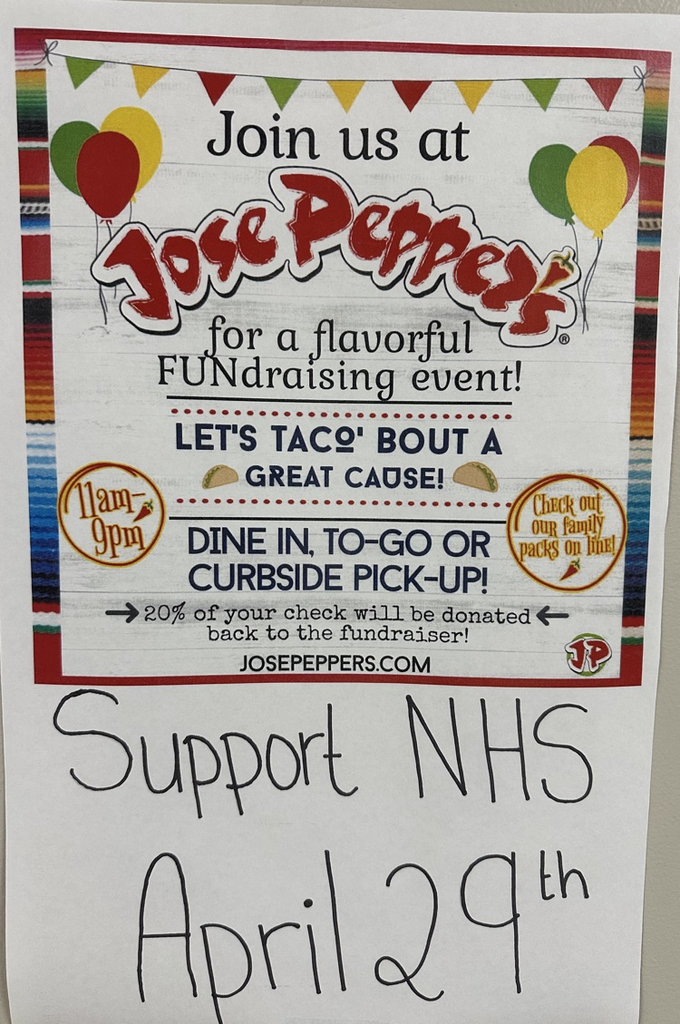 Join us at
Jose Pepper's®
for a flavorful
FUNdraising event!
LET'S TACO' BOUT A
GREAT CAUSE!
11am-
9pm
Check out
our family
packs on line!
DINE IN, TO-GO OR
CURBSIDE PICK-UP!
→ 20% of your check will be donated ←
back to the fundraiser!
JOSEPEPPERS.COM
JP
Support NHS
April 29th